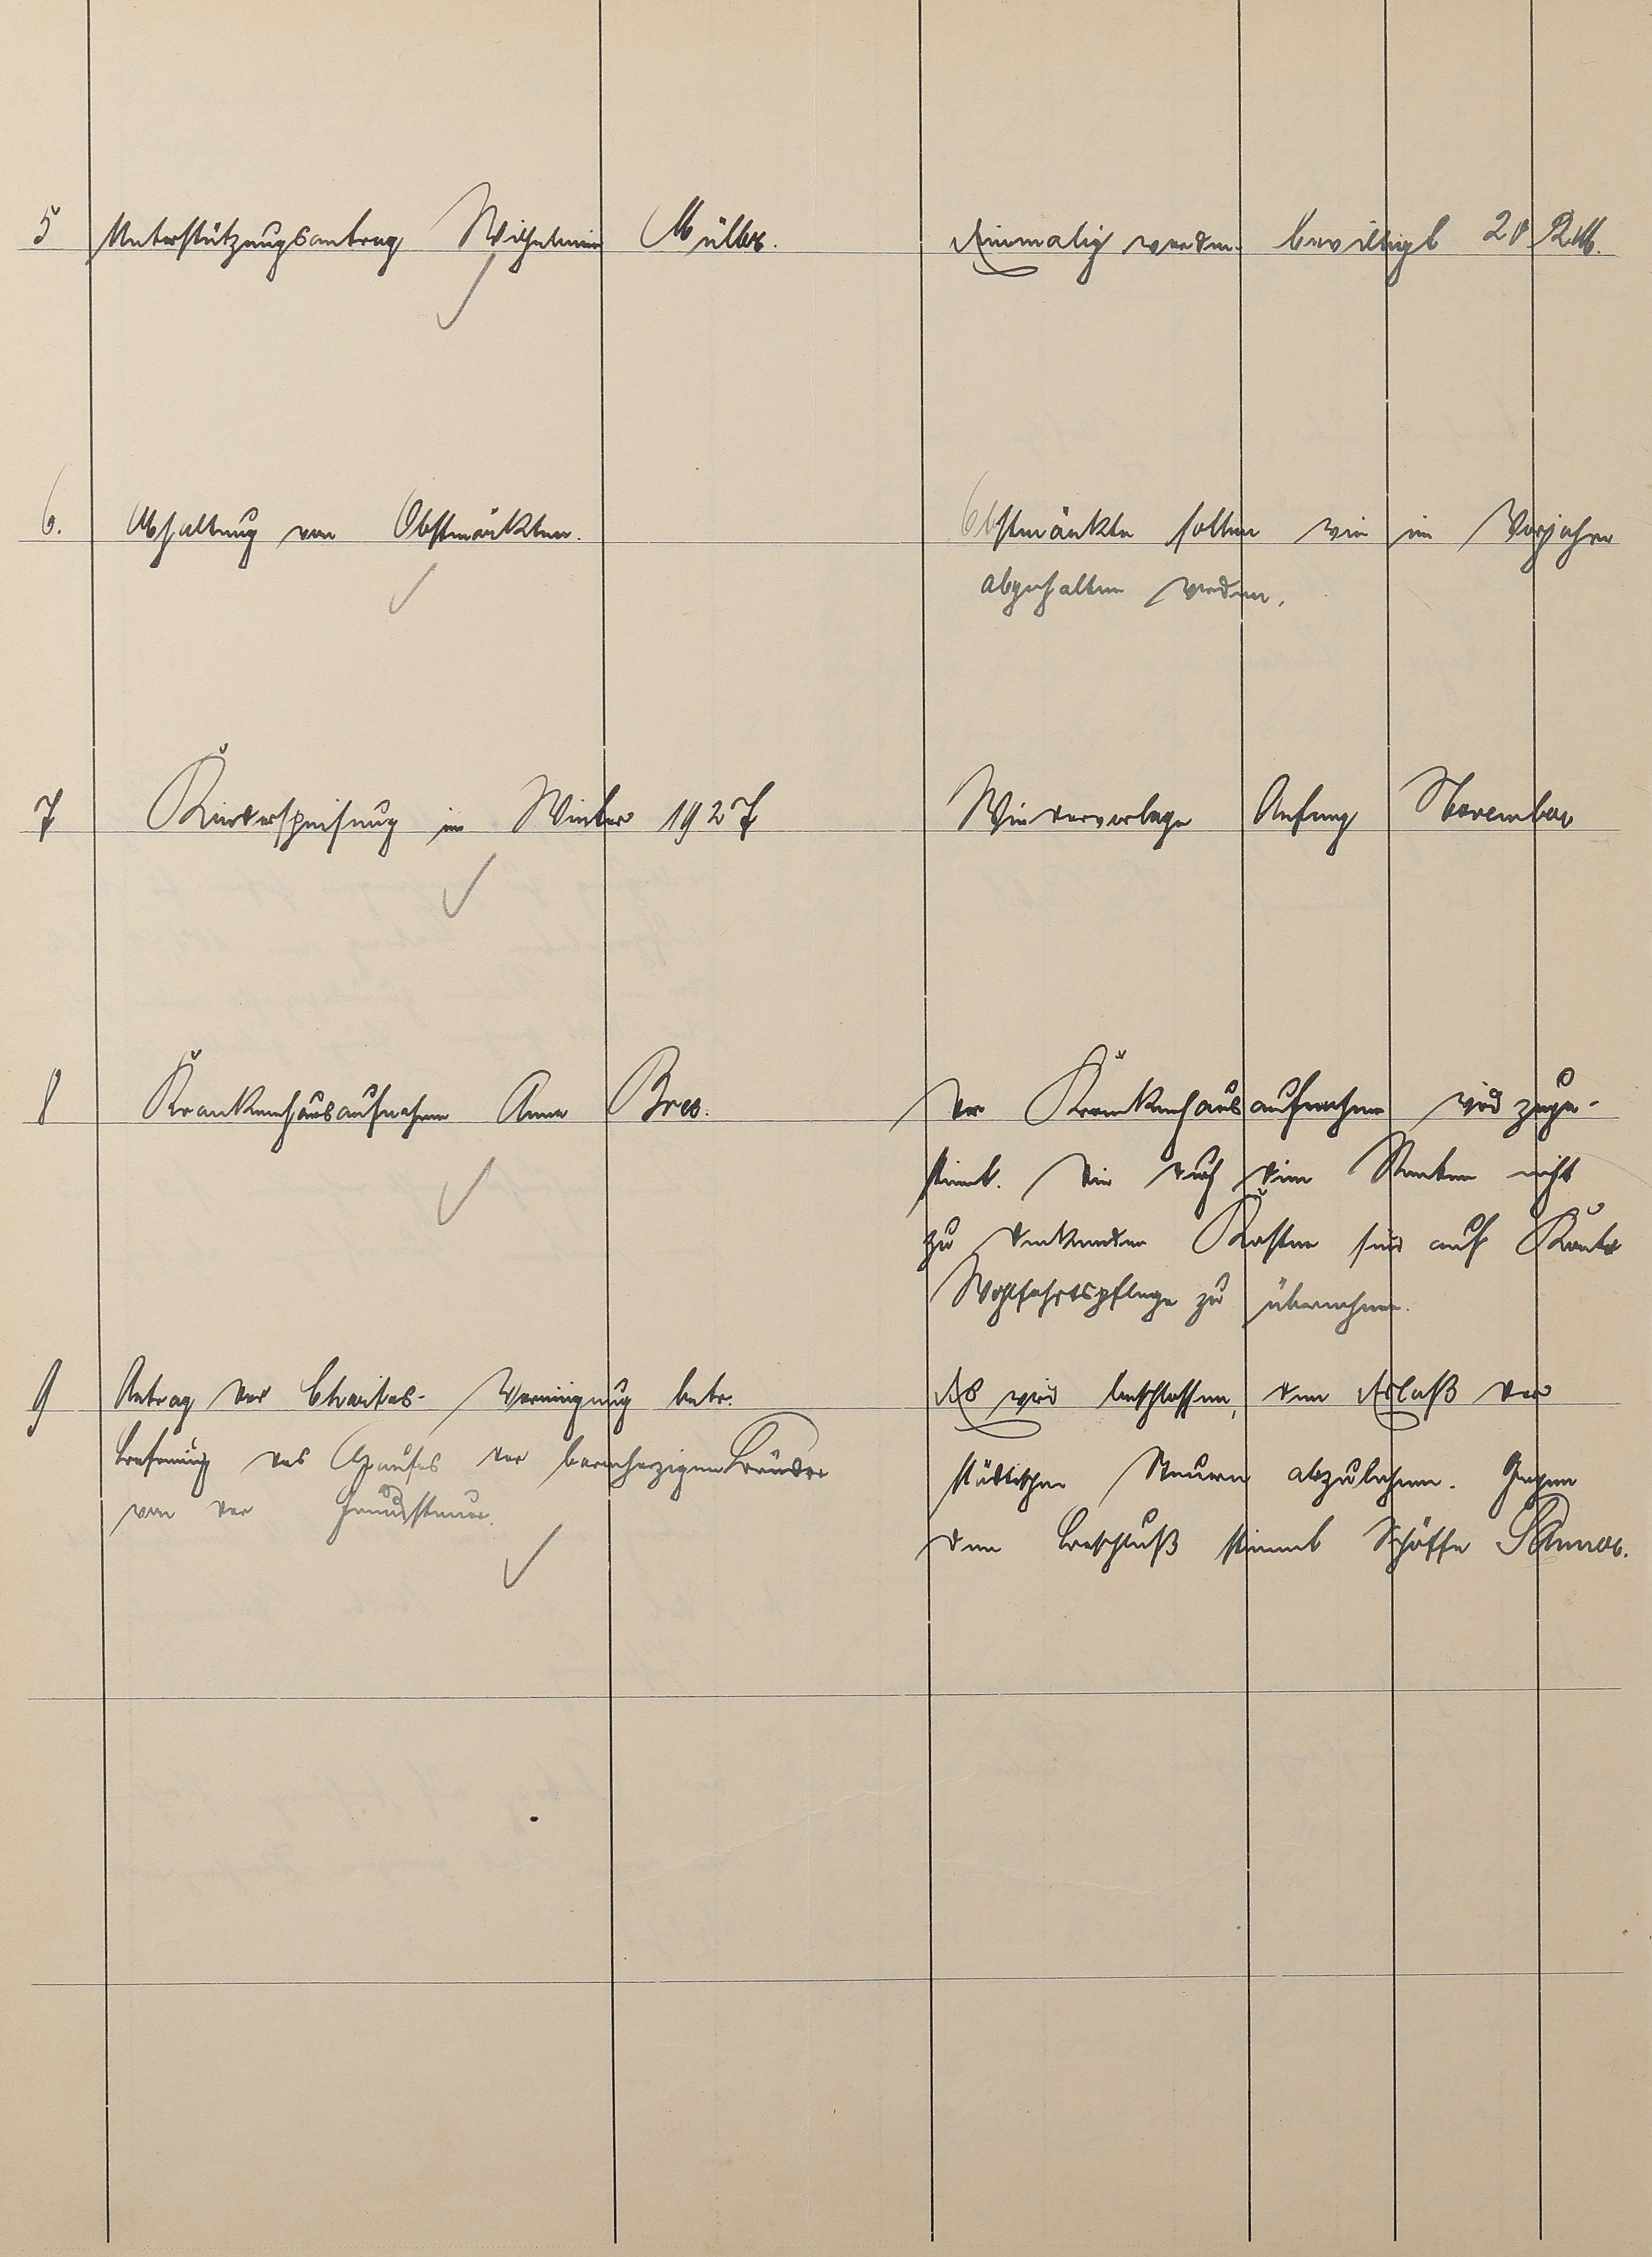 5 Unterstützungsantrag Wilhelmine Müller. Einmalig werden bewilligt 20 RM.
6. Abhaltung von Obstmärkten. Obstmärkte sollen wie im Vorjahre
abgehalten werden.
7 Kinderspeisung im Winter 1927 Wiedervorlage Anfang November
8 Krankenhausaufnahme Anna Der Krankenhausaufnahme wird zuge-
stimt. Die durch nicht
zu deckenden Kosten sind auf Konto
Wohlfahrtspflege zu übernehmen.
9 Antrag der Charitas-Vereinigung betr. Es wird beschlossen, den Erlaß der
Befreiung des Hauses der barmherzigen Brüder städtischen Steuern abzulehnen. Gegen
von der Grundsteuer. den Beschluß stimmt Schöffe